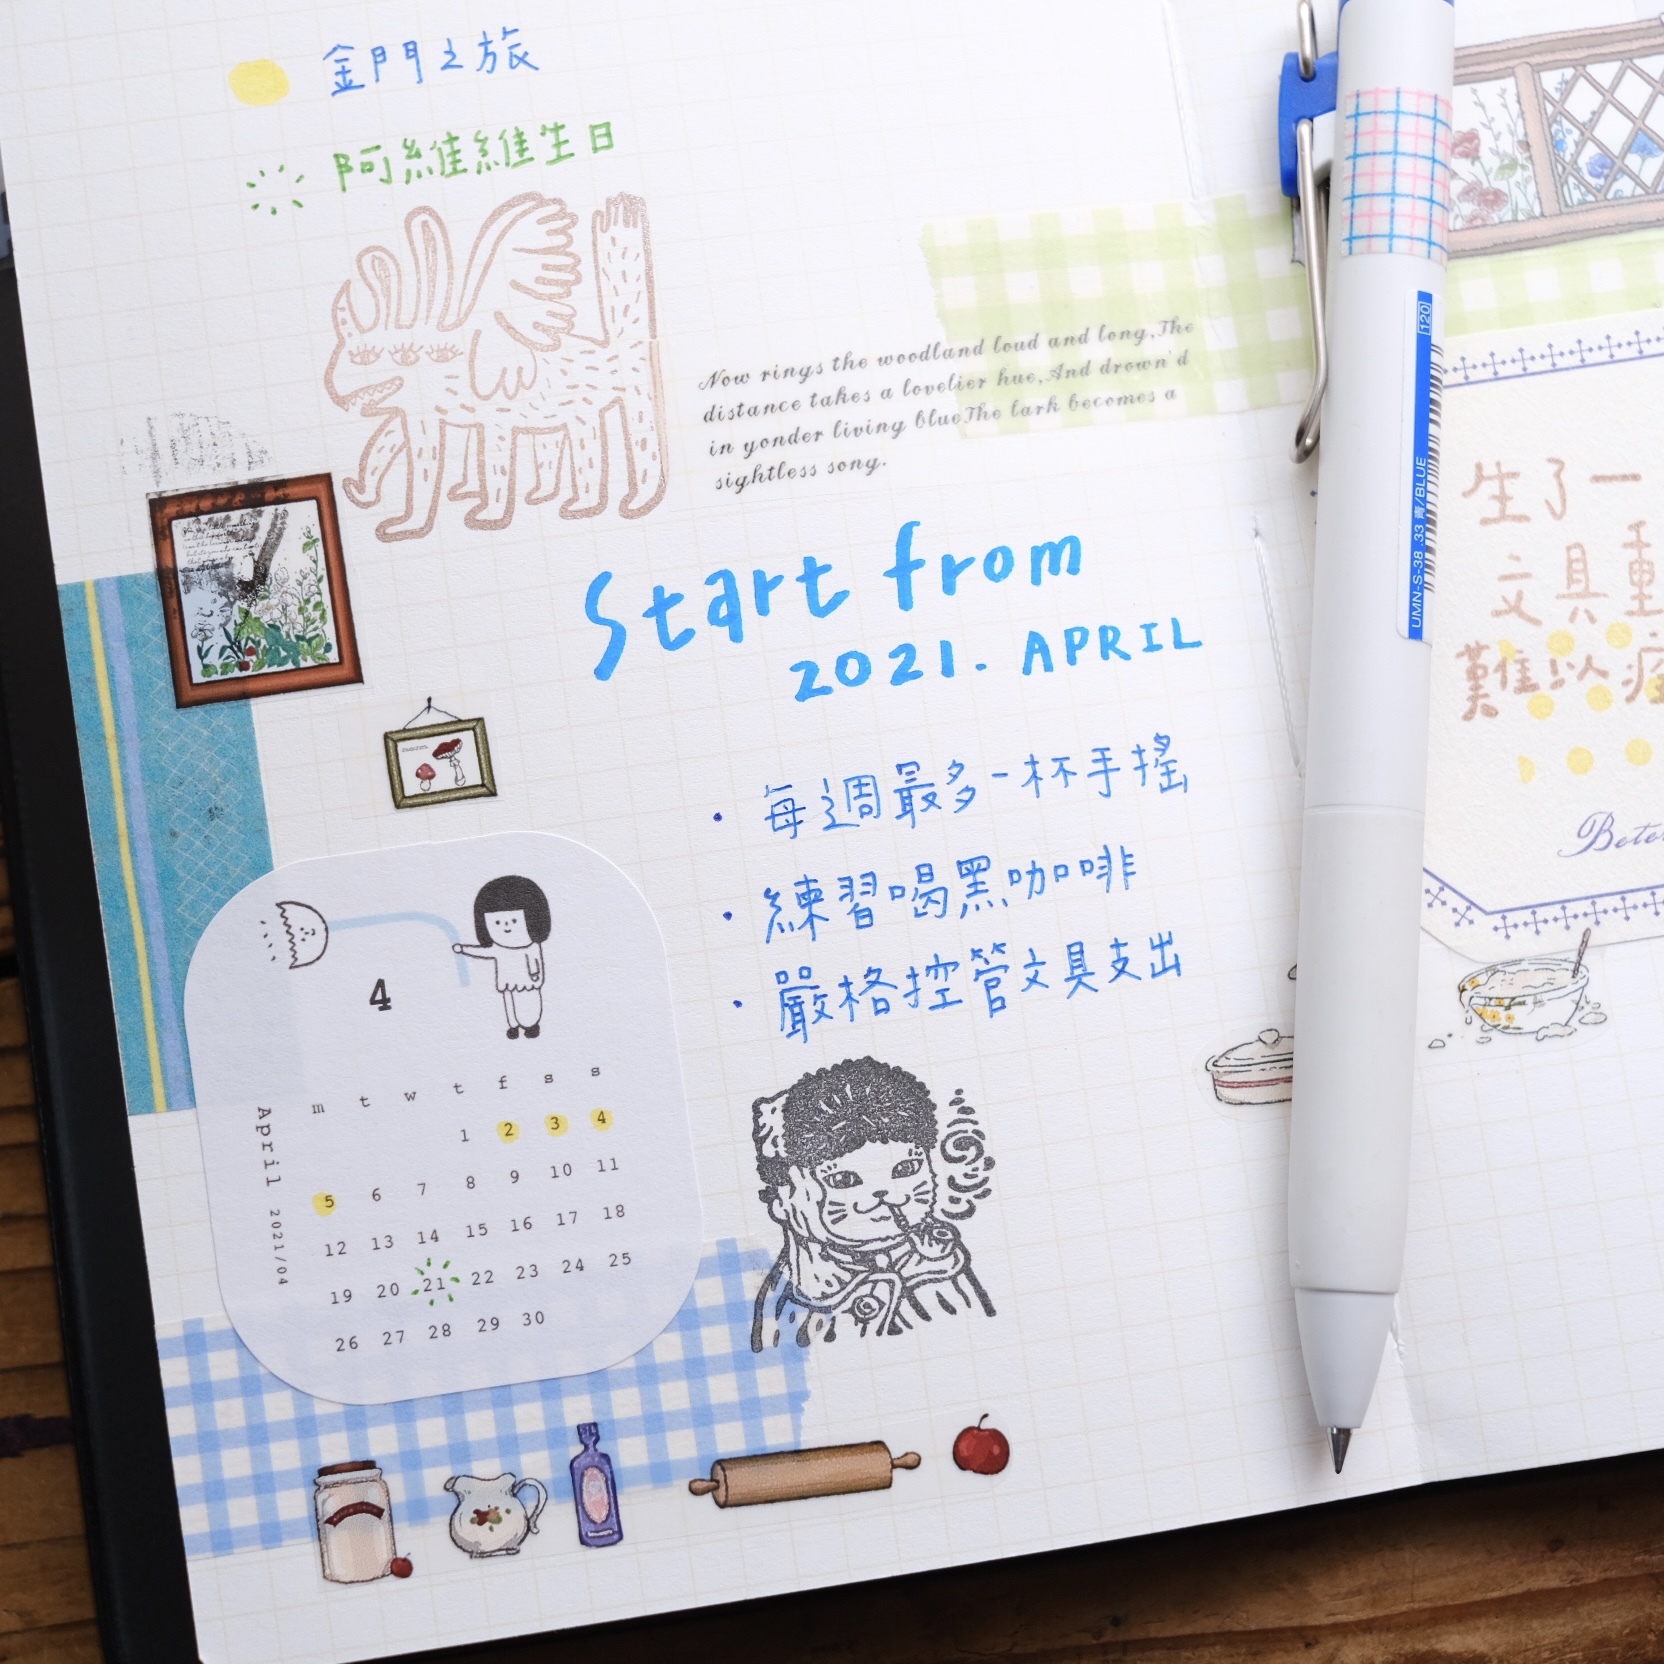 金門之旅
阿維維生日
Now rings the woodland loud and long,The
distance takes a lovelier hue,And drown'd
in yonder living blueThe lark becomes a
sightless song.
Start from
2021. APRIL
• 每週最多一杯手搖
• 練習喝黑咖啡
• 嚴格控管文具支出
4
m t w t f s s
1 2 3 4
5 6 7 8 9 10 11
12 13 14 15 16 17 18
19 20 21 22 23 24 25
26 27 28 29 30
April 2021/04
UMN-S-38 .33 青/BLUE 120
生了一
文具重
難以